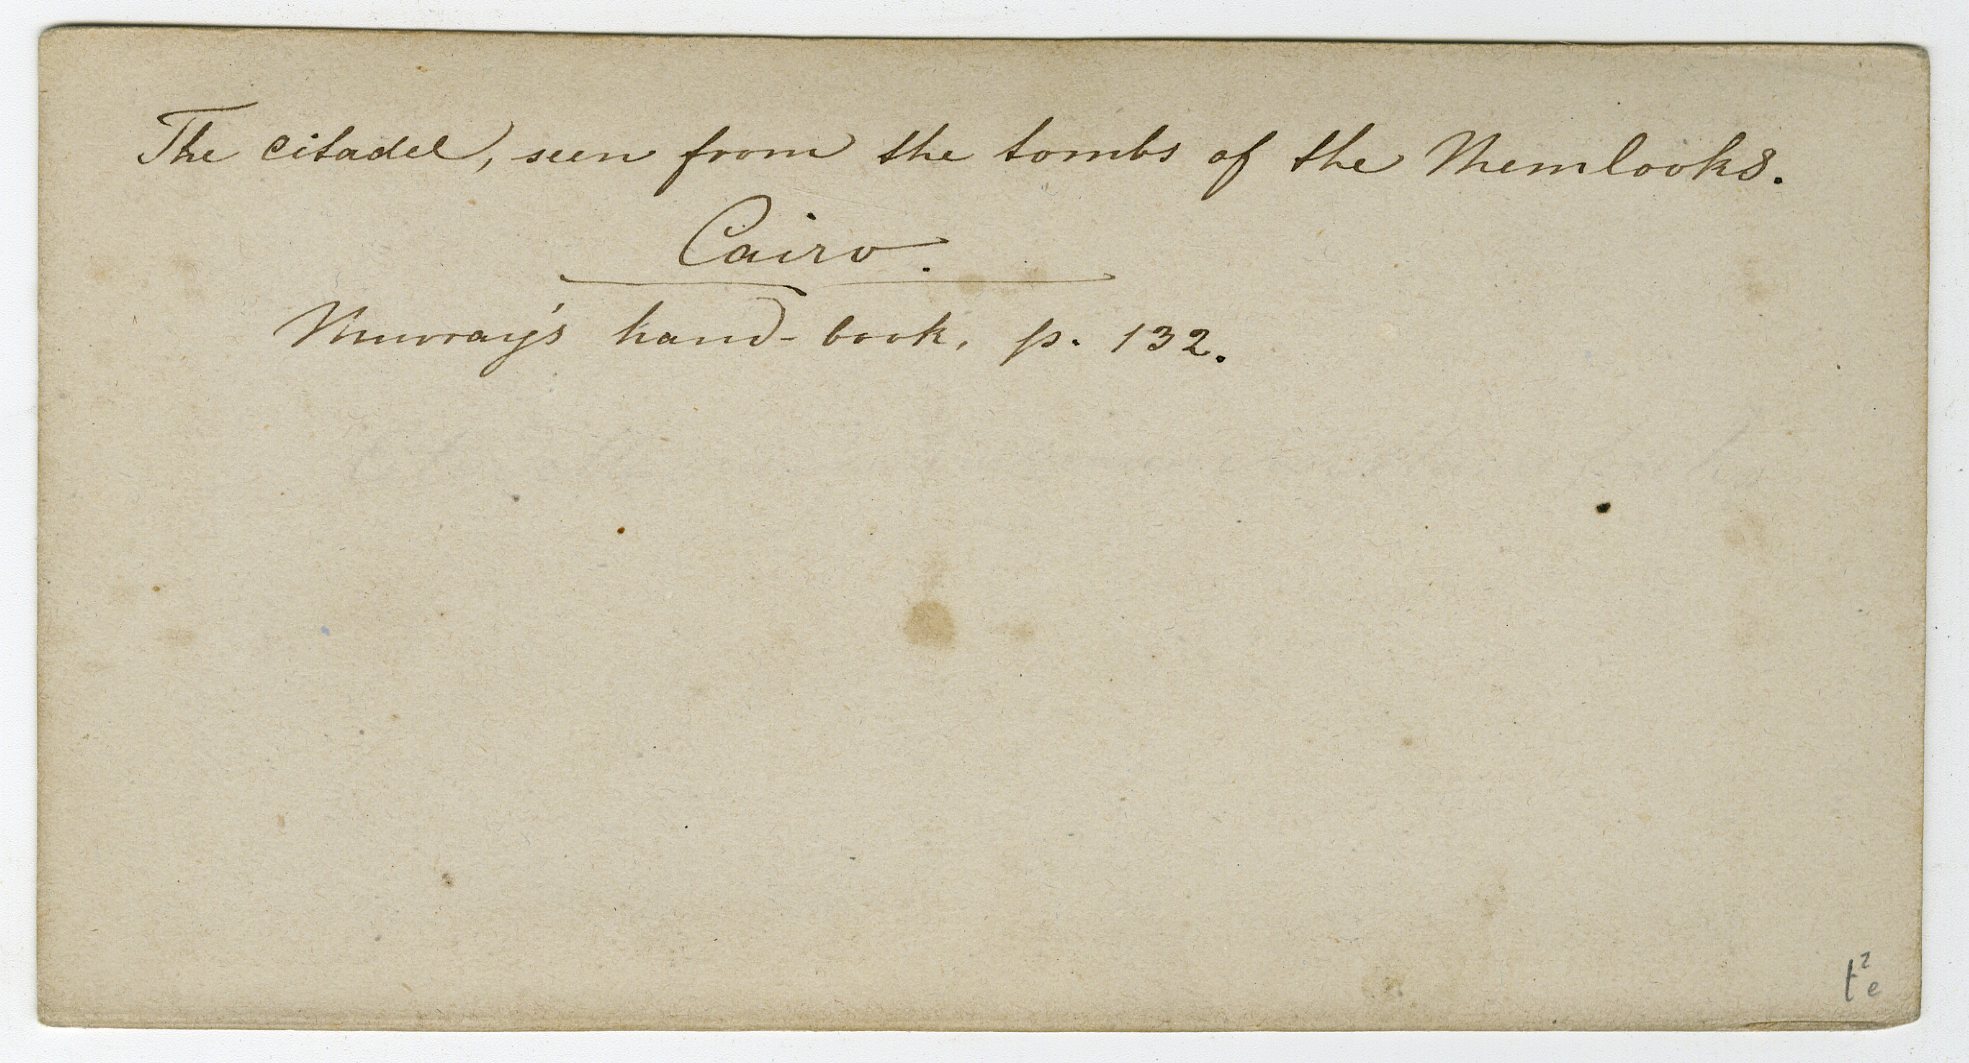 The citadel, seen from the tombs of the Memlooks.
Cairo.
Murray's hand-book, p. 132.